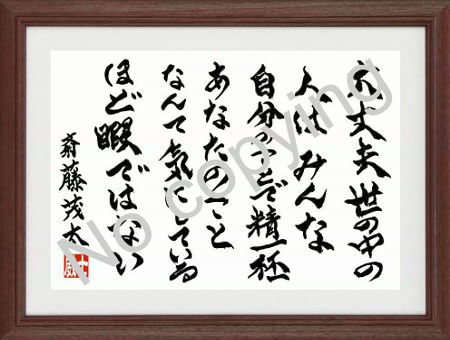 大丈夫 世の中の
人はみんな
自分のことで精一杯
あなたのこと
なんて気にしている
ほど暇ではない
斎藤茂太
No copying